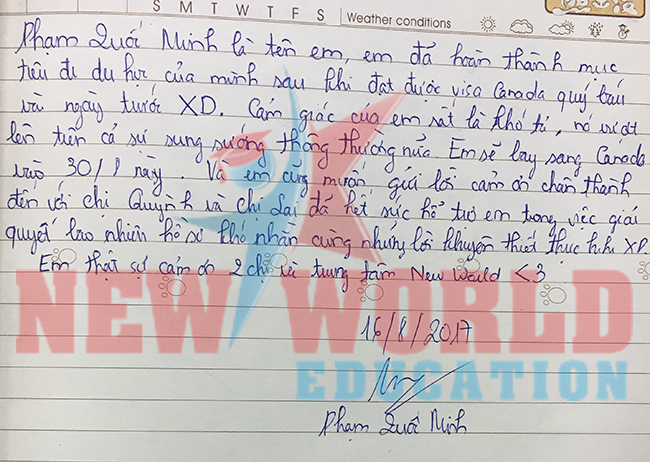 S M T W T F S Weather conditions
Phạm Quốc Minh là tên em, em đã hoàn thành mục
tiêu đi du học của mình sau khi đạt được visa Canada quý báu
vài ngày trước XD. Cảm giác của em rất là khó tả, nó vượt
lên trên cả sự sung sướng thông thường nữa. Em sẽ bay sang Canada
vào 30/8 này. Và em cũng muốn gửi lời cảm ơn chân thành
đến với chị Quỳnh và chị Sai đã hết sức hỗ trợ em trong việc giải
quyết bao nhiêu hồ sơ khó nhằn cùng những lời khuyên thiết thực khi XP.
Em thật sự cảm ơn 2 chị và trung tâm New World <3
NEW WORLD
EDUCATION
16/8/2017
Phạm Quốc Minh